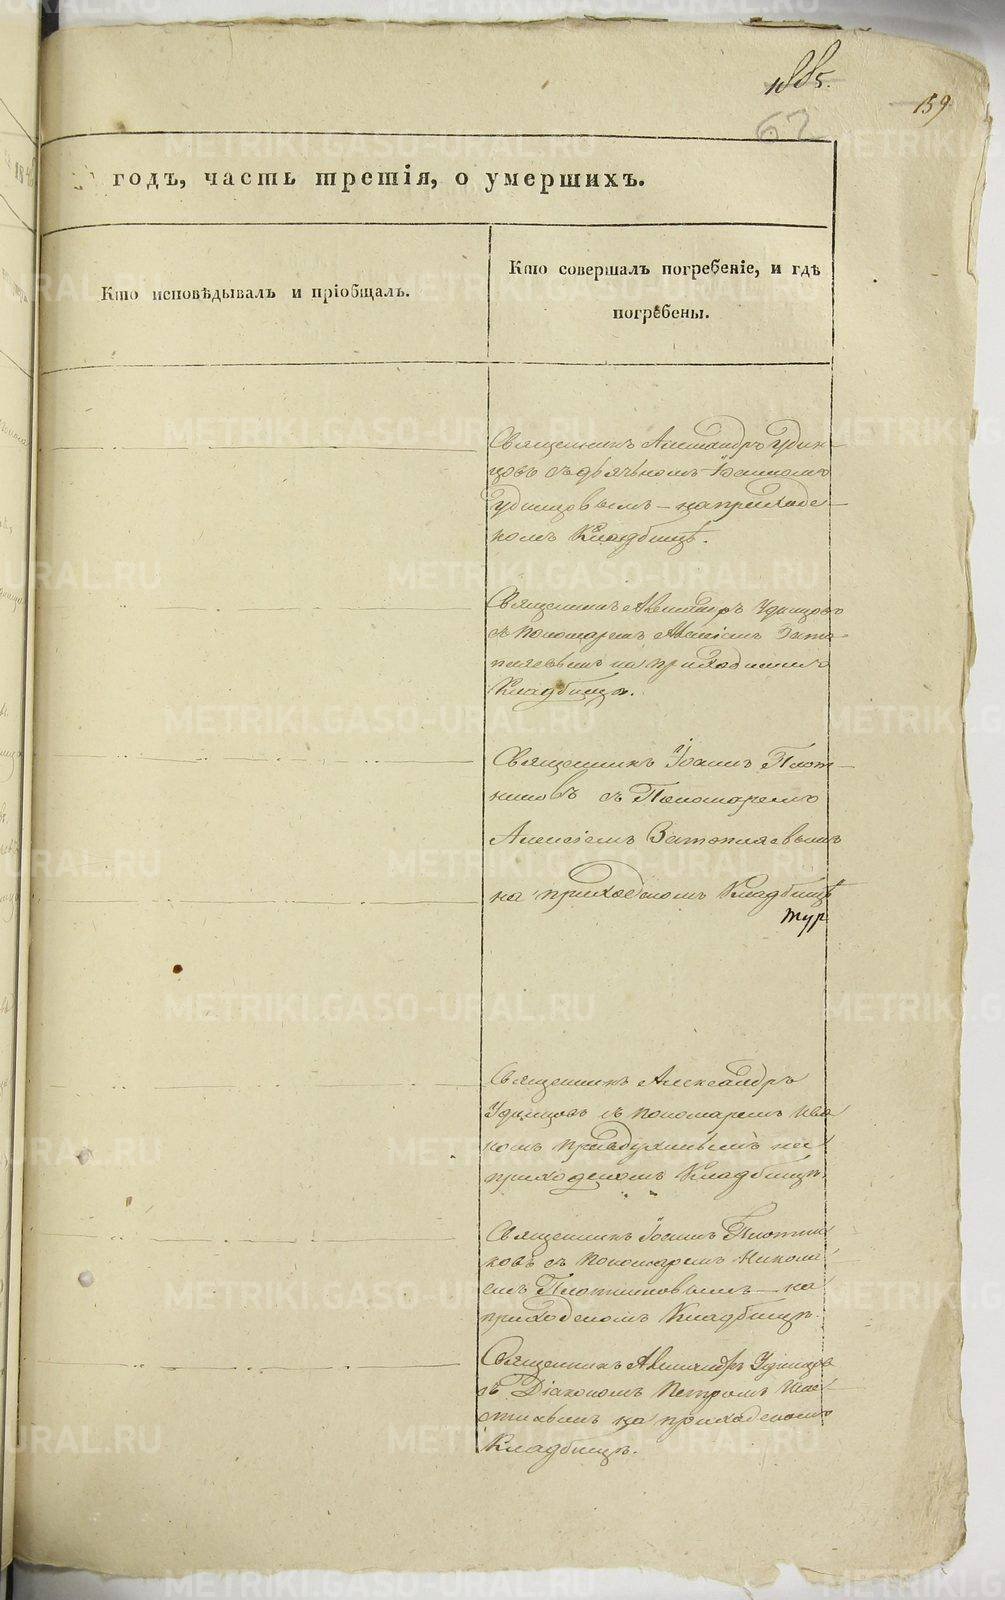 1885.
159
62
годъ, часть третія, о умершихъ.
Кто исповѣдывалъ и пріобщалъ.
Кто совершалъ погребеніе, и гдѣ
погребены.
Священникъ Александръ Удин-
цовъ съ дьячкомъ Іоанномъ
Удинцовымъ - на приходс-
комъ Кладбищѣ.
Священникъ Александръ Удинцовъ
съ пономаремъ Алексіемъ Зато-
пляевымъ на приходскомъ
Кладбищѣ.
Священникъ Іоаннъ Плот-
никовъ съ Пономаремъ
Алексіемъ Затопляевымъ
на приходскомъ Кладбищѣ
тур
Священникъ Александръ
Удинцовъ съ пономаремъ
на
приходскомъ Кладбищѣ.
Священникъ Іоаннъ Плотни
ковъ съ пономаремъ Никола
емъ Плотниковымъ - на
приходскомъ Кладбищѣ.
Священникъ Александръ Удинцовъ
съ Діакономъ Петромъ
на приходскомъ
Кладбищѣ.
METRIKI.GASO-URAL.RU